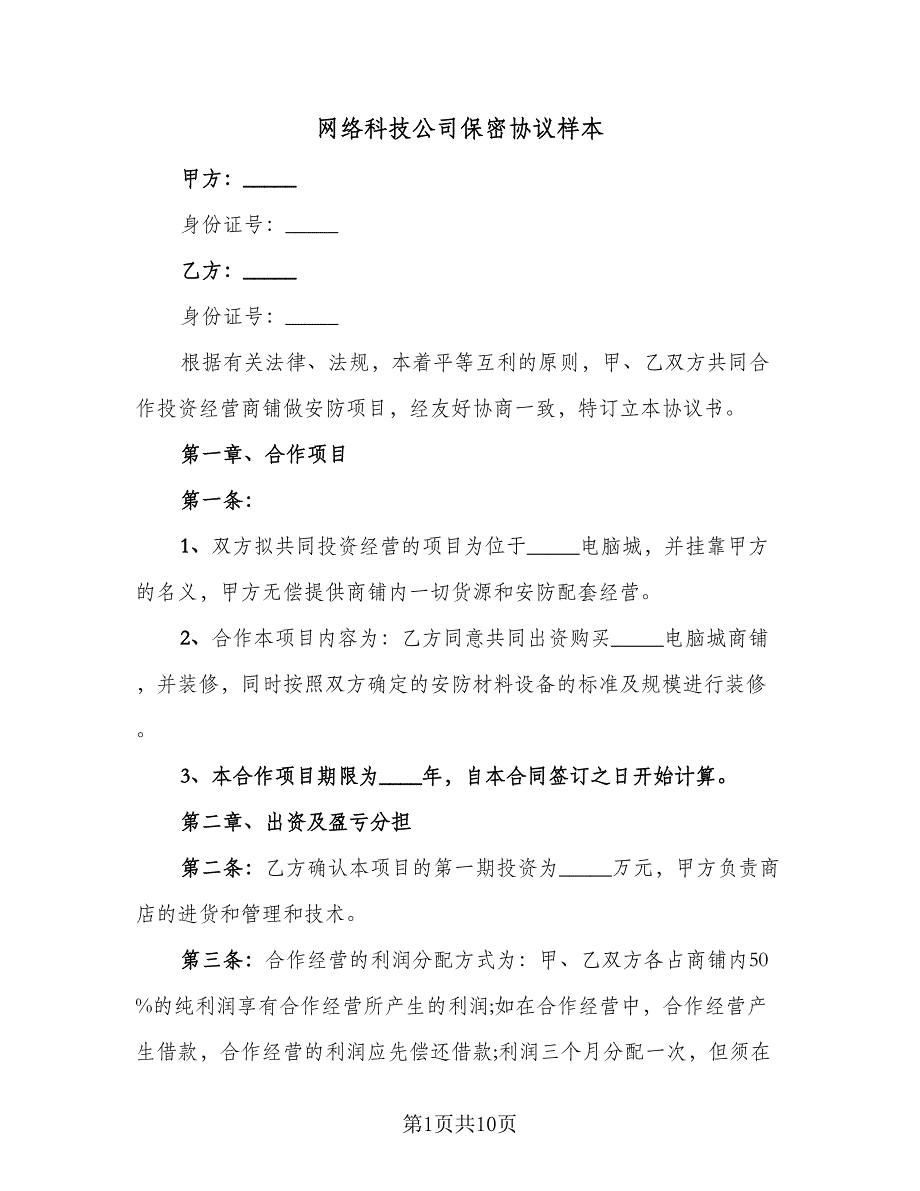 网络科技公司保密协议样本
甲方：_____
身份证号：_____
乙方：_____
身份证号：_____
根据有关法律、法规，本着平等互利的原则，甲、乙双方共同合
作投资经营商铺做安防项目，经友好协商一致，特订立本协议书。
第一章、合作项目
第一条：
1、双方拟共同投资经营的项目为位于_____电脑城，并挂靠甲方
的名义，甲方无偿提供商铺内一切货源和安防配套经营。
2、合作本项目内容为：乙方同意共同出资购买_____电脑城商铺
，并装修，同时按照双方确定的安防材料设备的标准及规模进行装修
。
3、本合作项目期限为____年，自本合同签订之日开始计算。
第二章、出资及盈亏分担
第二条：乙方确认本项目的第一期投资为_____万元，甲方负责商
店的进货和管理和技术。
第三条：合作经营的利润分配方式为：甲、乙双方各占商铺内50
%的纯利润享有合作经营所产生的利润;如在合作经营中，合作经营产
生借款，合作经营的利润应先偿还借款;利润三个月分配一次，但须在
第1页共10页